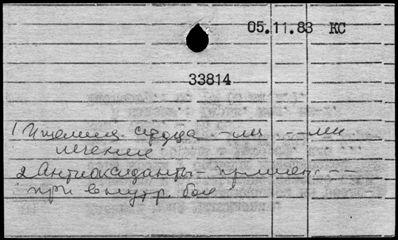 05.11.83 КС
33814
1 Ишемия сердца - -
лечение
2 Антиоксиданты - примен - -
при внутр. бол